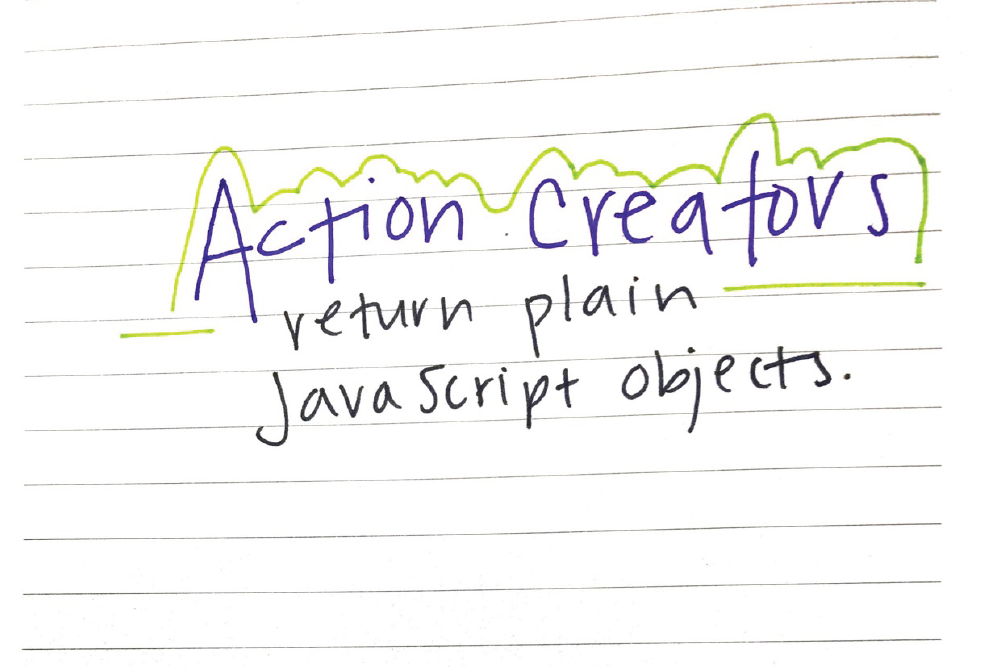 Action Creators
return plain
JavaScript objects.